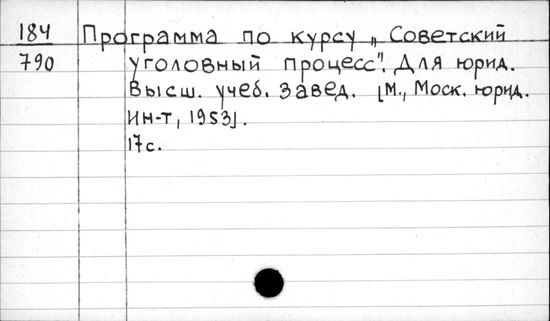 184 Программа по курсу „Советский
790 уголовный процесс". Для юрид.
Высш. учеб. завед. [М., Моск. юрид.
Ин-т, 1953].
17с.